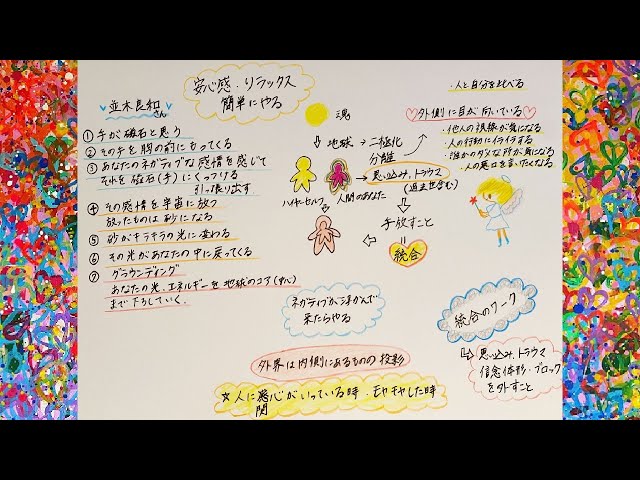 安心感、リラックス
簡単にやる
並木良和さん
① 手が磁石と思う
② その手を胸の前にもってくる
③ あなたのネガティブな感情を感じて
それを磁石(手)にくっつける
引っ張り出す
④ その感情を宇宙に放つ
放ったものは砂になる
⑤ 砂がキラキラの光に変わる
⑥ その光があなたの中に戻ってくる
⑦ グラウンディング
あなたの光、エネルギーを地球のコア(中心)
まで下ろしていく。
魂
地球 → 二極化
分離
思い込み、トラウマ
(過去世含む)
ハイヤーセルフ
人間のあなた
手放すこと
統合
・人と自分を比べる
外側に目が向いている
・他人の視線が気になる
・人の行動にイライラする
・誰かのダメな所が気になる
・人の悪口を言いたくなる
ネガティブがうかんで
来たらやる
統合のワーク
思い込み、トラウマ
信念体形・ブロック
を外すこと
外界は内側にあるものの投影
☆ 人に意心がいっている時・モヤモヤした時
関